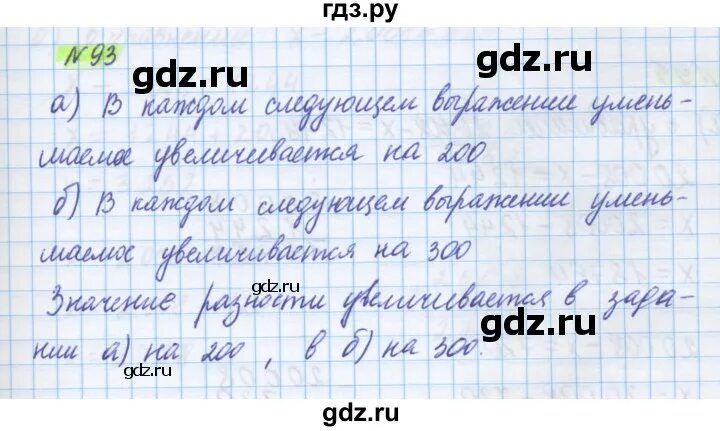 гдз.ру
№93
gdz.ru gdz.ru
а) В каждом следующем выражение умень-
шаемое увеличивается на 200
б) В каждом следующем выражении умень-
шаемое увеличивается на 300
gdz.ru
Значение разности увеличивается в зада-
gdz.ru
нии а) на 200, в б) на 300.
gdz.ru
gdz.ru